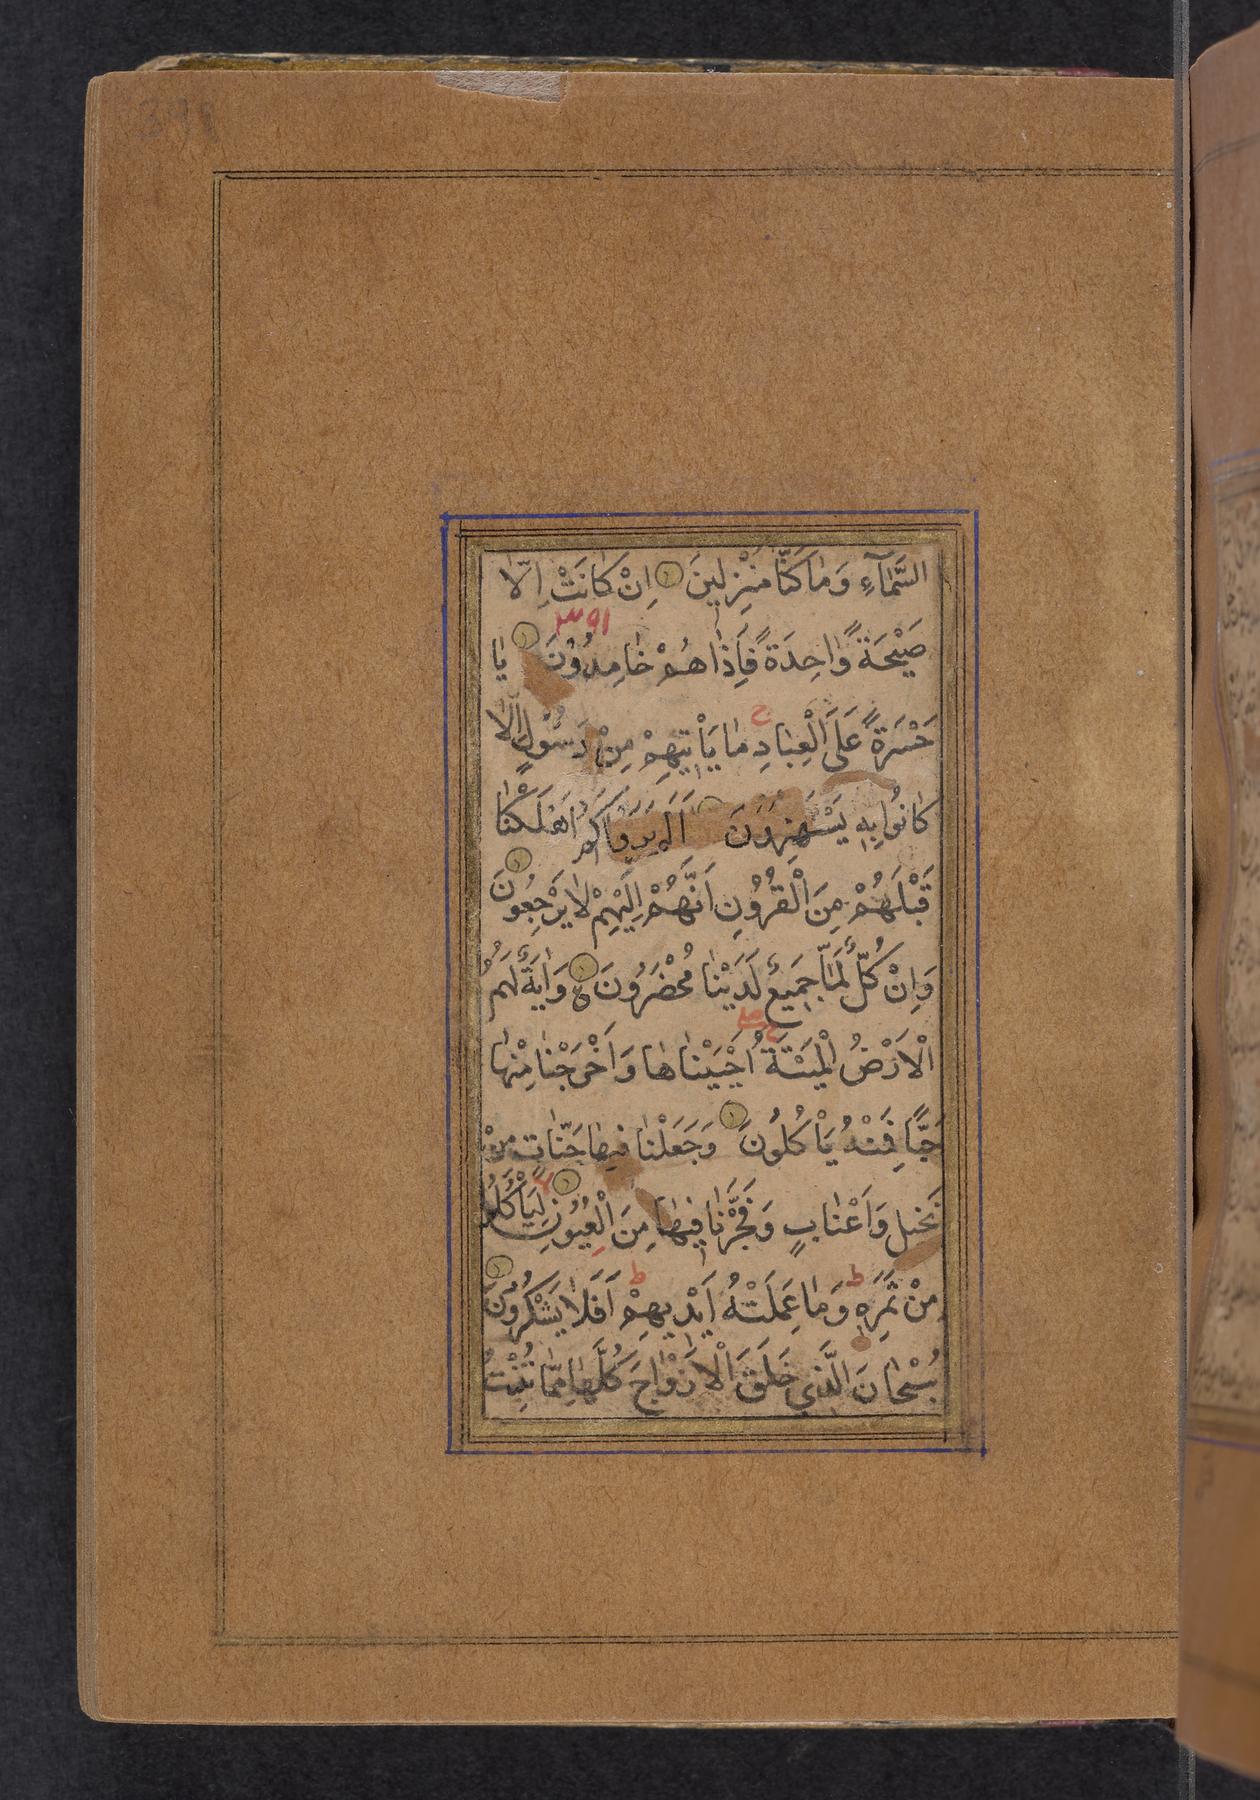 السَّمَآءِ وَمٰا كُنّٰا مُنْزِلينَ اِنْ كٰانَتْ اِلّٰا
صَيْحَةً وٰاحِدَةً فَاِذٰا هُمْ خٰامِدُونَ يٰا
حَسْرَةً عَلَى الْعِبٰادِ مٰا يَأْتيهِمْ مِنْ رَسُولٍ اِلّٰا
كٰانُوا بِهِ يَسْتَهْزِؤُنَ اَلَمْ يَرَوْا كَمْ اَهْلَكْنٰا
قَبْلَهُمْ مِنَ الْقُرُونِ اَنَّهُمْ اِلَيْهِمْ لٰا يَرْجِعُونَ
وَاِنْ كُلٌّ لَمّٰا جَميعٌ لَدَيْنٰا مُحْضَرُونَ وَاٰيَةٌ لَهُمُ
الْاَرْضُ الْمَيْتَةُ اَحْيَيْنٰاهٰا وَاَخْرَجْنٰا مِنْهٰا
حَبًّا فَمِنْهُ يَأْكُلُونَ وَجَعَلْنٰا فيهٰا جَنّٰاتٍ مِنْ
نَخيلٍ وَاَعْنٰابٍ وَفَجَّرْنٰا فيهٰا مِنَ الْعُيُونِ لِيَأْكُلُوا
مِنْ ثَمَرِهِ وَمٰا عَمِلَتْهُ اَيْديهِمْ اَفَلٰا يَشْكُرُونَ
سُبْحٰانَ الَّذي خَلَقَ الْاَزْوٰاجَ كُلَّهٰا مِمّٰا تُنْبِتُ